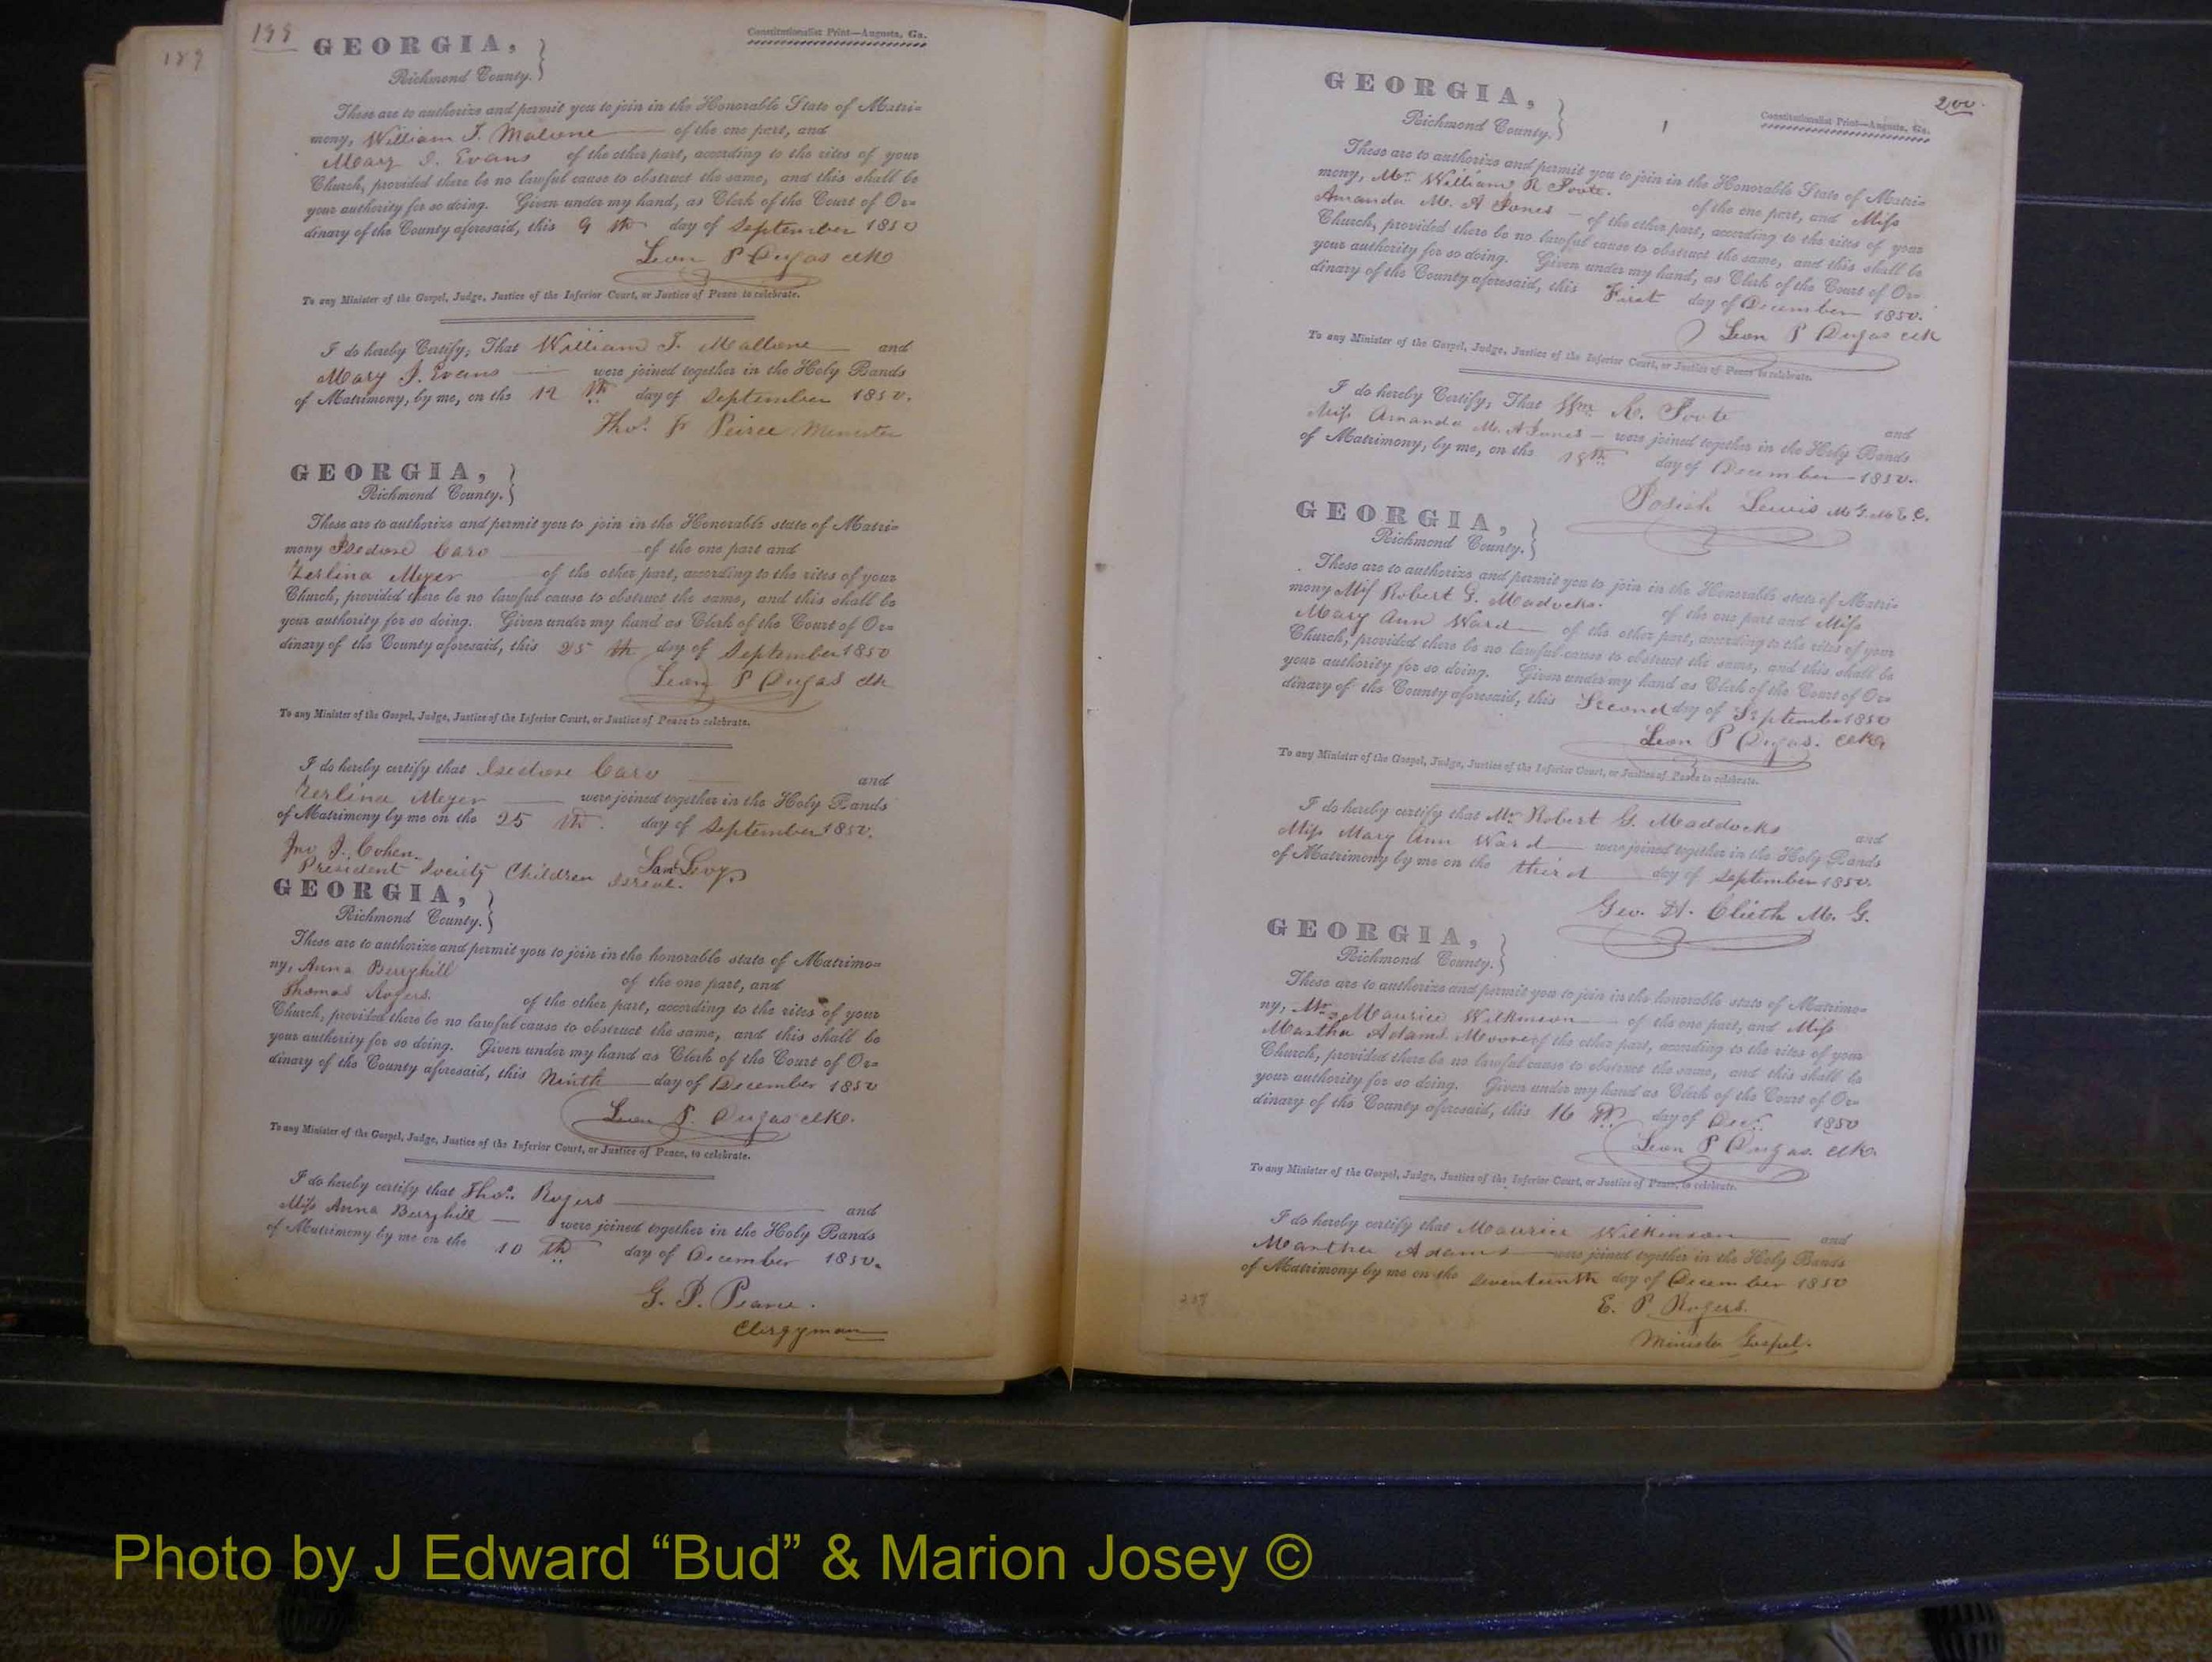 189
199
GEORGIA,
Richmond County.
Constitutionalist Print—Augusta, Ga.
These are to authorize and permit you to join in the Honorable State of Matri-
mony, William T. Malone of the one part, and
Mary J. Evans of the other part, according to the rites of your
Church, provided there be no lawful cause to obstruct the same, and this shall be
your authority for so doing. Given under my hand, as Clerk of the Court of Or-
dinary of the County aforesaid, this 9 th day of September 1850
Leon P Dugas clk
To any Minister of the Gospel, Judge, Justice of the Inferior Court, or Justice of Peace to celebrate.
I do hereby Certify, That William T. Mallone and
Mary J. Evans were joined together in the Holy Bands
of Matrimony, by me, on the 12 th day of September 1850.
Tho. F Peirce Minister
GEORGIA,
Richmond County.
These are to authorize and permit you to join in the Honorable state of Matri-
mony Isedore Caro of the one part and
Zerlina Meyer of the other part, according to the rites of your
Church, provided there be no lawful cause to obstruct the same, and this shall be
your authority for so doing. Given under my hand as Clerk of the Court of Or-
dinary of the County aforesaid, this 25 th day of September 1850
Leon P Dugas clk
To any Minister of the Gospel, Judge, Justice of the Inferior Court, or Justice of Peace to celebrate.
I do hereby certify that Isedore Caro and
Zerlina Meyer were joined together in the Holy Bands
of Matrimony by me on the 25 th. day of September 1850.
Jno J. Cohen. Saml Levy
President Society Children Isreal.
GEORGIA,
Richmond County.
These are to authorize and permit you to join in the honorable state of Matrimo-
ny, Anna Berryhill of the one part, and
Thomas Rogers. of the other part, according to the rites of your
Church, provided there be no lawful cause to obstruct the same, and this shall be
your authority for so doing. Given under my hand as Clerk of the Court of Or-
dinary of the County aforesaid, this Ninth day of December 1850
Leon P. Dugas clk.
To any Minister of the Gospel, Judge, Justice of the Inferior Court, or Justice of Peace, to celebrate.
I do hereby certify that Thos. Rogers and
Miss Anna Berryhill were joined together in the Holy Bands
of Matrimony by me on the 10 th day of December 1850.
G. P. Pearce.
Clergyman
200.
GEORGIA,
Richmond County.
Constitutionalist Print—Augusta, Ga.
These are to authorize and permit you to join in the Honorable State of Matri-
mony, Mr. William R Foote. of the one part, and Miss
Amanda M. A Jones of the other part, according to the rites of your
Church, provided there be no lawful cause to obstruct the same, and this shall be
your authority for so doing. Given under my hand, as Clerk of the Court of Or-
dinary of the County aforesaid, this First day of December 1850.
Leon P Dugas clk
To any Minister of the Gospel, Judge, Justice of the Inferior Court, or Justice of Peace to celebrate.
I do hereby Certify, That Wm. R. Foote and
Miss Amanda M. A Jones were joined together in the Holy Bands
of Matrimony, by me, on the day of December 1850.
Josiah Lewis M G. M E C.
GEORGIA,
Richmond County.
These are to authorize and permit you to join in the Honorable state of Matri-
mony Robert G. Madocks. of the one part and Miss
Mary Ann Ward of the other part, according to the rites of your
Church, provided there be no lawful cause to obstruct the same, and this shall be
your authority for so doing. Given under my hand as Clerk of the Court of Or-
dinary of the County aforesaid, this Second day of September 1850
Leon P Dugas. clk
To any Minister of the Gospel, Judge, Justice of the Inferior Court, or Justice of Peace to celebrate.
I do hereby certify that Mr Robert G. Maddocks and
Miss Mary Ann Ward were joined together in the Holy Bands
of Matrimony by me on the third day of September 1850.
Geo. H. Clieth M. G.
GEORGIA,
Richmond County.
These are to authorize and permit you to join in the honorable state of Matrimo-
ny, Mr. Maurice Wilkinson of the one part, and Miss
Martha Adams Moore of the other part, according to the rites of your
Church, provided there be no lawful cause to obstruct the same, and this shall be
your authority for so doing. Given under my hand as Clerk of the Court of Or-
dinary of the County aforesaid, this 16 th day of Dec. 1850
Leon P Dugas. clk.
To any Minister of the Gospel, Judge, Justice of the Inferior Court, or Justice of Peace, to celebrate.
I do hereby certify that Maurice Wilkinson and
Martha Adams were joined together in the Holy Bands
of Matrimony by me on the Seventeenth day of December 1850
E. P Rogers.
Minister Gospel.
Photo by J Edward “Bud” & Marion Josey ©